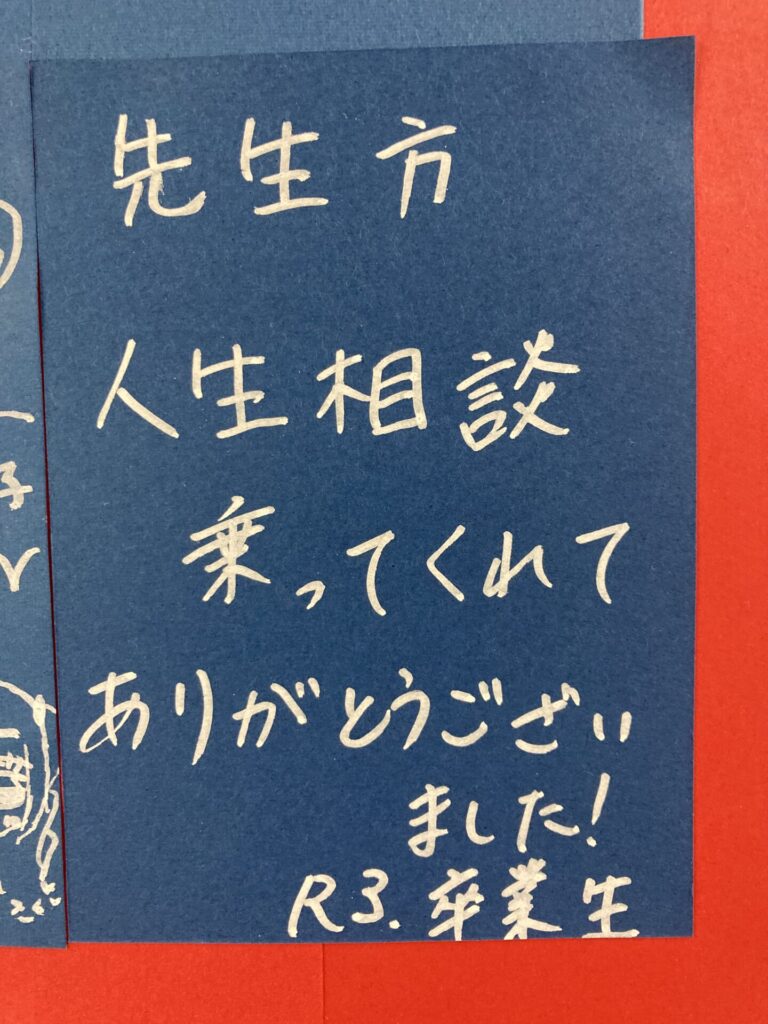 先生方
人生相談
乗ってくれて
ありがとうござい
ました!
R3.卒業生
子